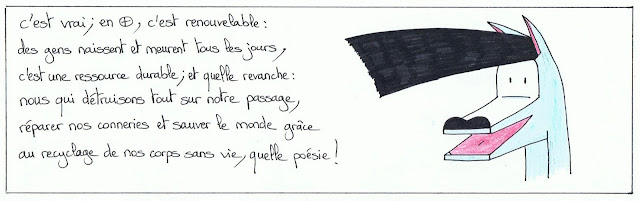 c'est vrai; en ⊕, c'est renouvelable :
des gens naissent et meurent tous les jours,
c'est une ressource durable; et quelle revanche :
nous qui détruisons tout sur notre passage,
réparer nos conneries et sauver le monde grâce
au recyclage de nos corps sans vie, quelle poésie !